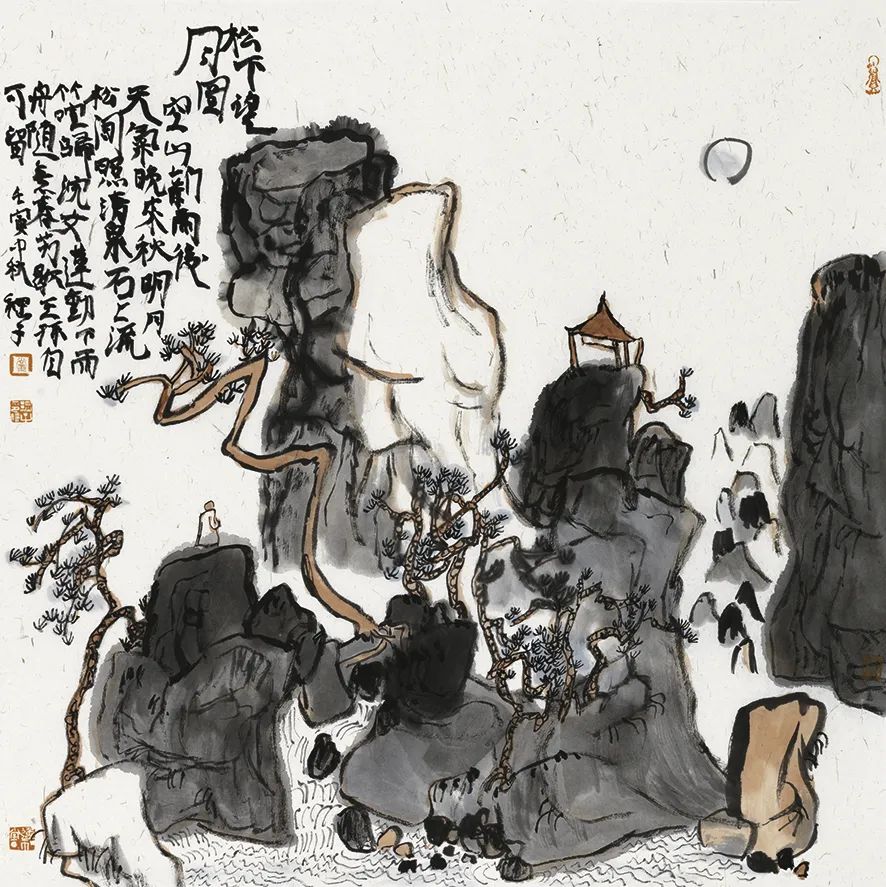 松下望
月圖
空山新雨後
天氣晚來秋明月
松间照清泉石上流
竹喧歸浣女蓮動下
舟随意春芳歇王孫自
可留 壬寅中秋